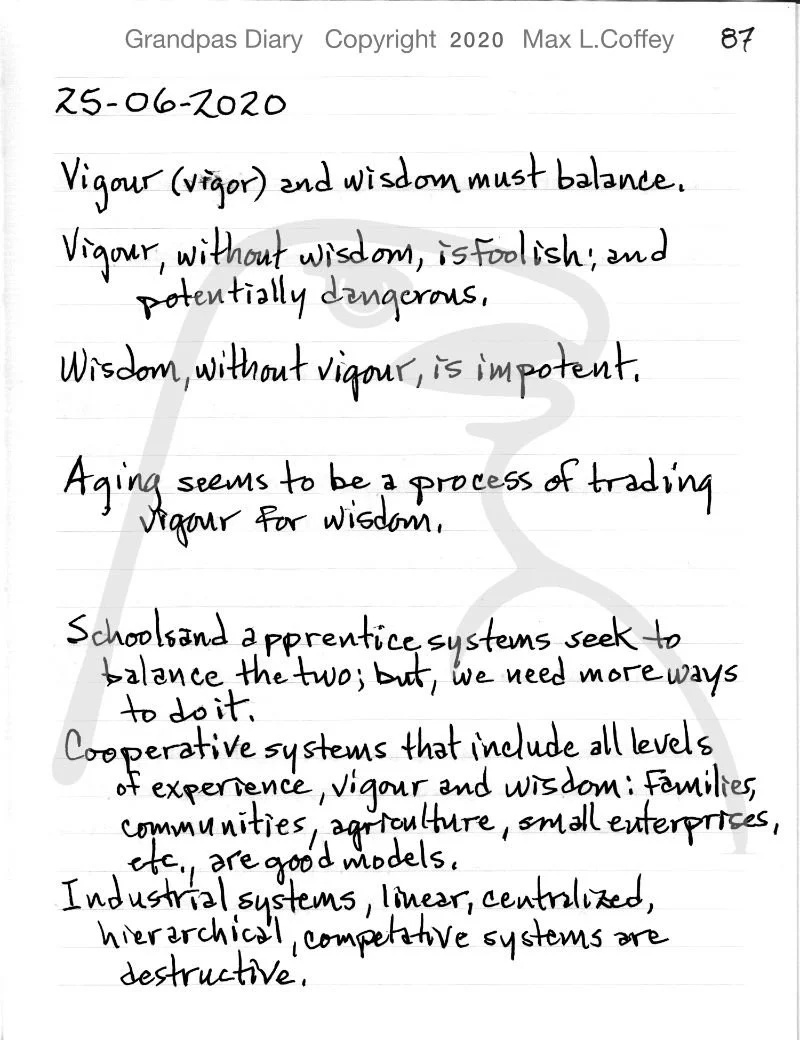 Grandpas Diary Copyright 2020 Max L.Coffey 87
25-06-2020
Vigour (vigor) and wisdom must balance.
Vigour, without wisdom, is foolish; and
potentially dangerous.
Wisdom, without vigour, is impotent.
Aging seems to be a process of trading
vigour for wisdom.
Schools and apprentice systems seek to
balance the two; but, we need more ways
to do it.
Cooperative systems that include all levels
of experience, vigour and wisdom: Families,
communities, agriculture, small enterprises,
etc., are good models.
Industrial systems, linear, centralized,
hierarchical, competative systems are
destructive.